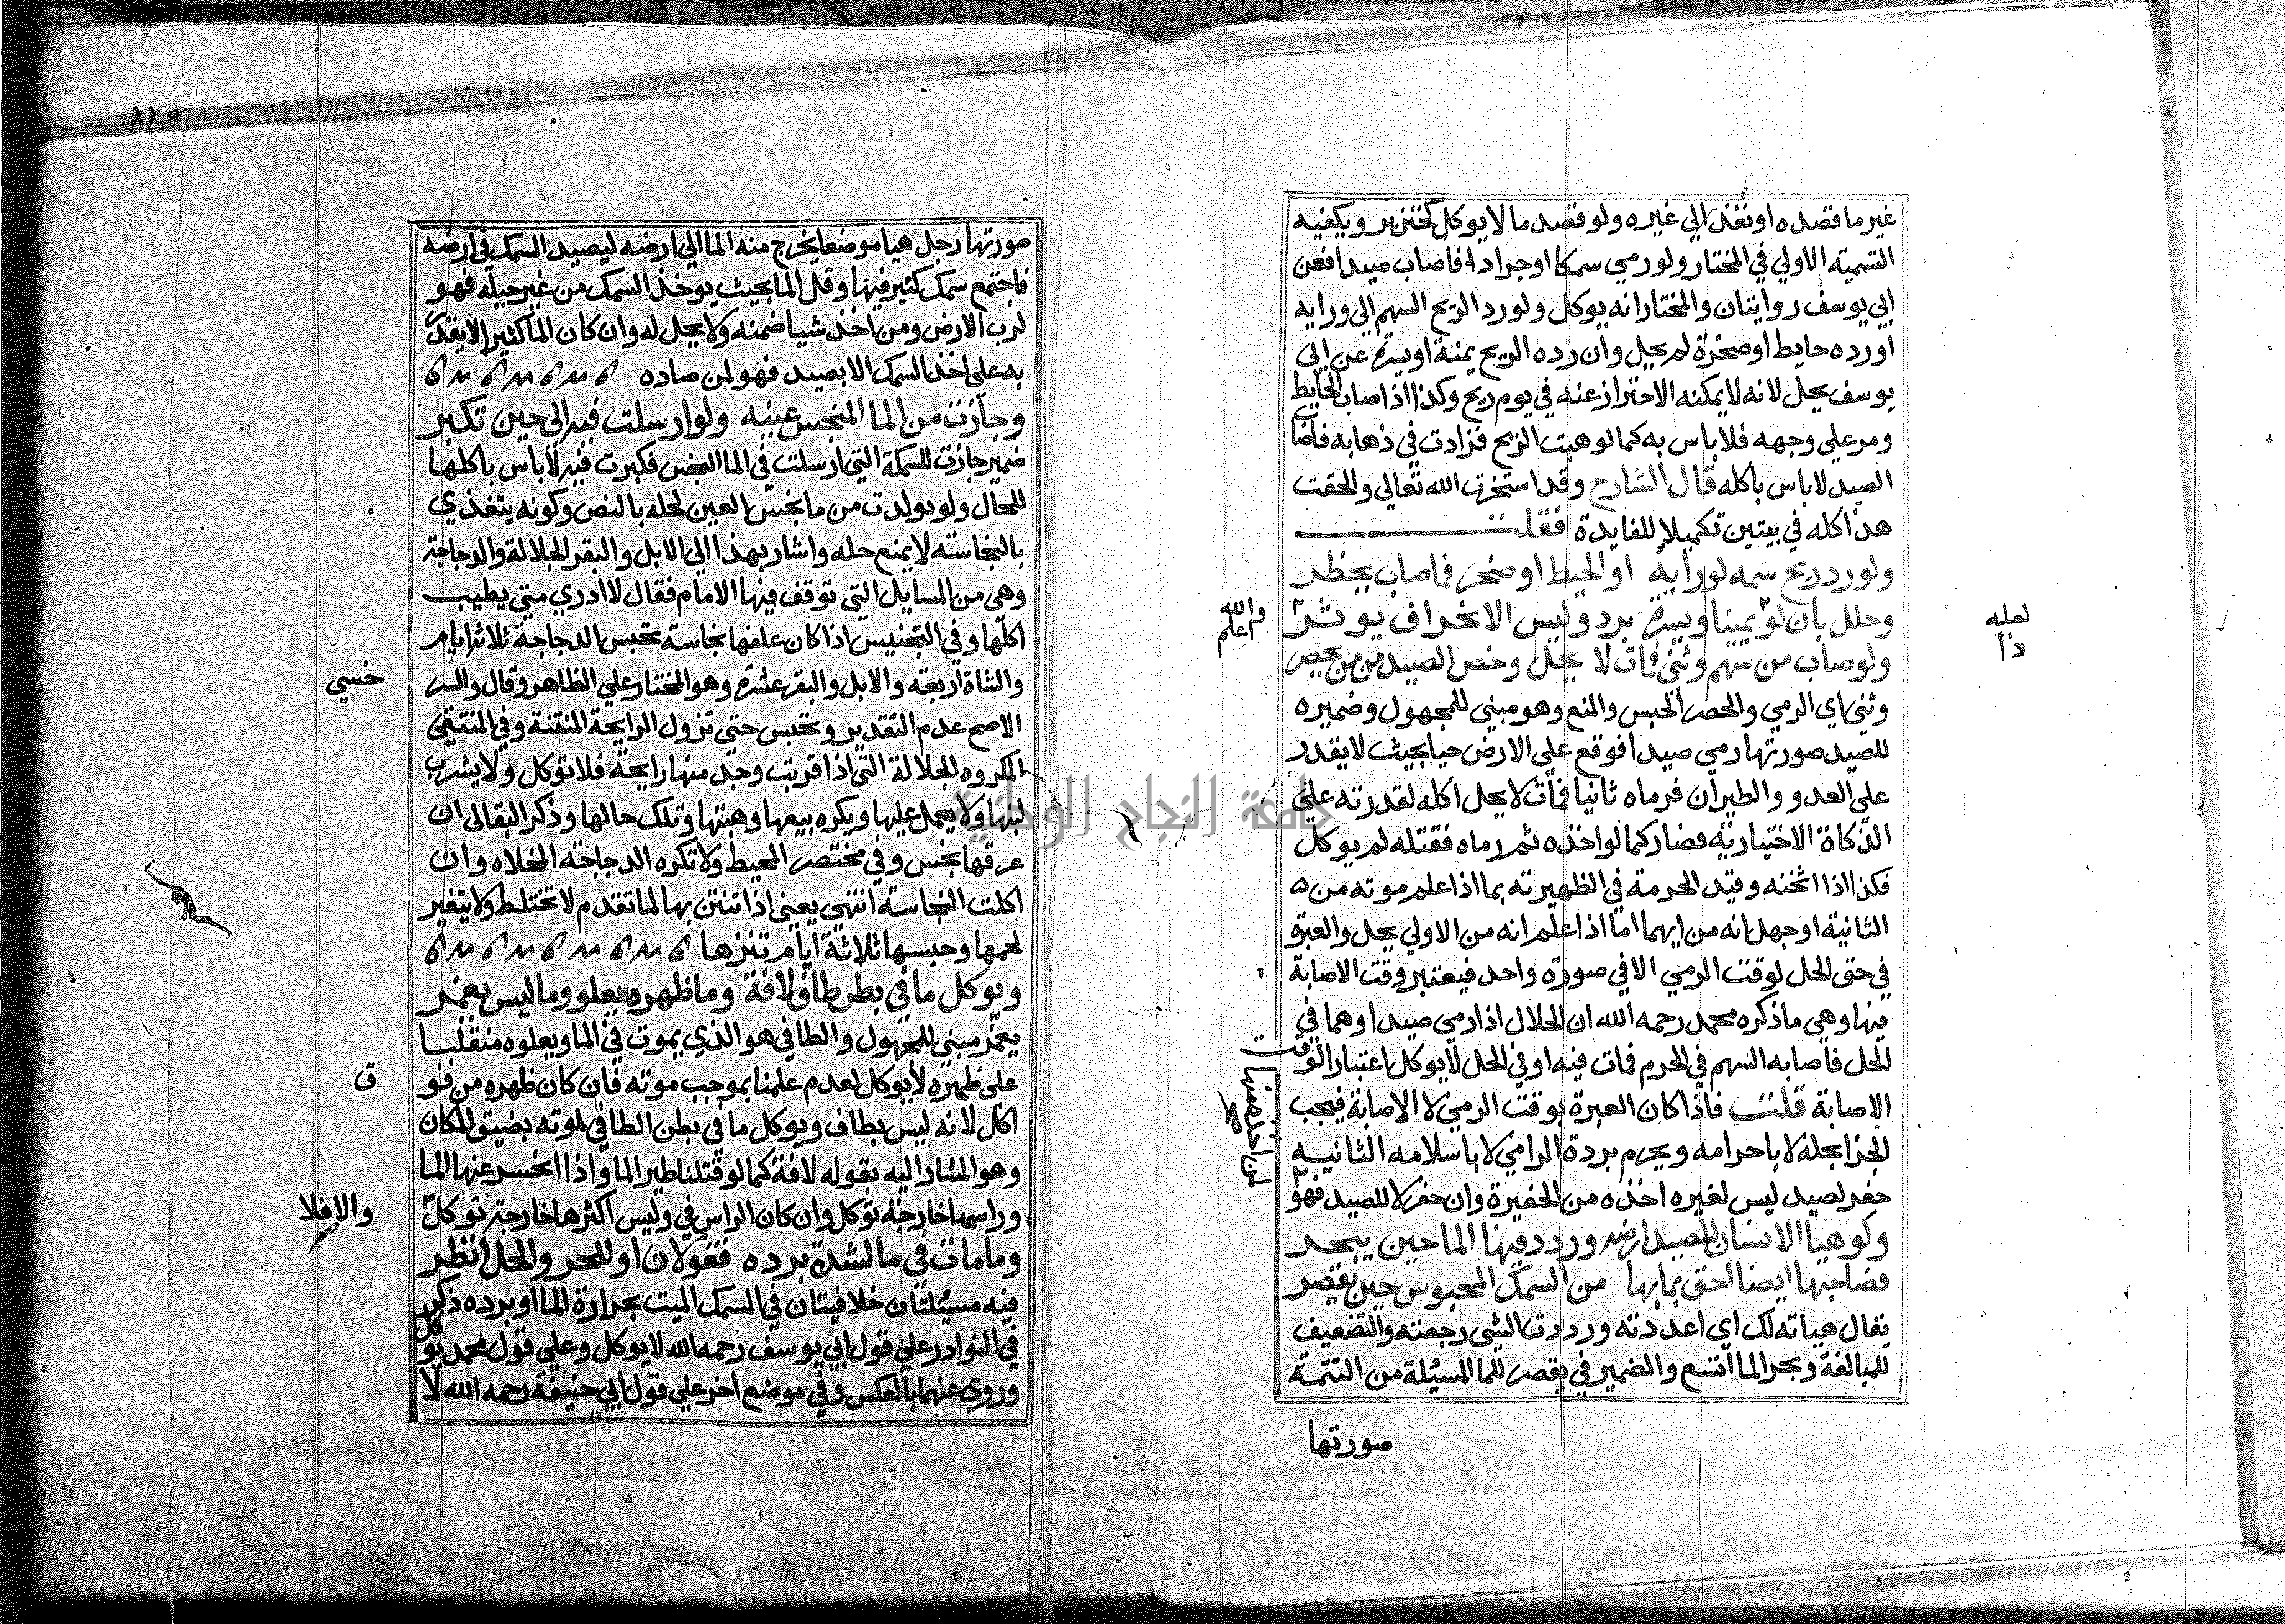 غير ما قصده او نفذ الي غيره ولو قصد ما لا يوكل كخنزير ويكفيه
التسمية الاولي في المختار ولو رمي سمكا او جرادا فاصاب صيدا فعن
ابي يوسف روايتان والمختار انه يوكل ولو رد الريح السهم الي ورايه
او رده حايط او صخرة لم يحل وان رده الريح يمنة او يسرة عن ابي
يوسف يحل لانه لا يمكنه الاحتراز عنه في يوم ريح وكذا اذا صاب الحايط
ومر علي وجهه فلا باس به كما لو هبت الريح فزادت في ذهابه فاصا
الصيد لا باس باكله قال الشارح وقد استخرت الله تعالي والحقت
هذا كله في بيتين تكميلا للفايدة فقلت
ولو رد ريح سهمه لورايه او الحيط او صخر فما صاب يحظر
وحلل بان لو يمينا ويسرة يرد وليس الانحراف يوثر
ولو صاب من سهم وثني فمات لا يحل وخص الصيد من من يحصر
وثني اي الرمي والحصر الحبس والمنع وهو مبني للمجهول وضميره
للصيد صورتها رمي صيدا فوقع علي الارض حيا بحيث لا يقدر
علي العدو والطيران فرماه ثانيا فمات لا يحل اكله لقدرته علي
الذكاة الاختيارية فصار كما لو اخذه ثم رماه فقتله لم يوكل
فكذا اذا اثخنه وقيد الحرمة في الظهيرته بما اذا علم موته من
الثانية او جهل انه من ايهما اما اذا علم انه من الاولي يحل والعبرة
في حق الحل لوقت الرمي الا في صورة واحد فيعتبر وقت الاصابة
فيها وهي ما ذكره محمد رحمه الله ان الحلال اذا رمي صيدا وهما في
الحل فاصابه السهم في الحرم فمات فيه او في الحل لا يوكل اعتبارا لوقت
الاصابة قلت فاذا كان العبرة بوقت الرمي لا الاصابة فيجب
الجزا بحله لا باحرامه ويحرم بردة الرامي لا باسلامه الثانيه
حفر لصيد ليس لغيره اخذه من الحفيرة وان حفر لا للصيد فهو
لمن اخذه منها
ولو هيا الانسان للصيد ارضه وردد فيها الما حين يبحر
فصاحبها ايضا احق بما بها من السمك المحبوس حين يقصر
يقال هياته لك اي اعددته ورددت الشي رجعته والتضعيف
للمبالغة وبحر الما اتسع والضمير في يقصر للما المسئلة من التتمة
صورتها
والله اعلم
لعله
ذا
١١٥
صورتها رجل هيا موضعا يخرج منه الما الي ارضه ليصيد السمك في ارضه
فاجتمع سمك كثير فيها وقل الما بحيث يوخذ السمك من غير حيله فهو
لرب الارض ومن اخذ شيا ضمنه ولا يحل له وان كان الما كثيرا لا يقدر
به علي اخذ السمك الا بصيد فهو لمن صاده
وجازت من الما المنجس عينه ولو ارسلت فيه الي حين تكبر
ضمير جازت للسمكة التي ارسلت في الما النجس فكبرت فيه لا باس باكلها
للحال ولو يولدت من ما نجس العين لحله بالنص وكونه يتغذي
بالنجاسته لا يمنع حله واشار بهذا الي الابل والبقر الجلالة والدجاجة
وهي من المسايل التي توقف فيها الامام فقال لا ادري متي يطيب
اكلها وفي التجنيس اذا كان علفها نجاسة تحبس الدجاجة ثلاثة ايام
والشاة اربعة والابل والبقر عشرة وهو المختار علي الظاهر وقال والسر
خسي
الاصح عدم التقدير وتحبس حتي تزول الرايحة المنتنة وفي المنتقي
المكروه الجلالة التي اذا قربت وجد منها رايحة فلا توكل ولا يشرب
لبنها ولا يعمل عليها ويكره بيعها وهبتها وتلك حالها وذكر البقالي ان
عرقها نجس وفي مختصر المحيط ولا تكره الدجاجة المخلاه وان
اكلت النجاسة انتهي يعني اذا تنتن بها لما تقدم لا تختلط ولا يتغير
لحمها وحبسها ثلاثة ايام تنزها
ويوكل ما في بطن طاف لافة وما ظهره يعلو وما ليس يغمر
يغمر مبني للمجهول والطافي هو الذي يموت في الما ويعلوه منقلبا
علي ظهره لا يوكل لعدم علمنا بموجب موته فان كان ظهره من فو
ق
اكل لانه ليس بطاف ويوكل ما في بطن الطافي لموته بضيق المكان
وهو المشار اليه بقوله لافة كما لو قتلنا طير الما واذا انحسر عنها الما
وراسها خارجة توكل وان كان الراس في وليس اكثرها خارجة توكل
والا فلا
وما مات في ما لشدة برده فقولان او للحر والحل انظر
فيه مسئلتان خلافيتان في السمك الميت بحرارة الما او برده ذكر
في النوادر علي قول ابي يوسف رحمه الله لا يوكل وعلي قول محمد يوكل
وروي عنهما بالعكس وفي موضع اخر علي قول ابي حنيفة رحمه الله لا
جامعة النجاح الوطنية